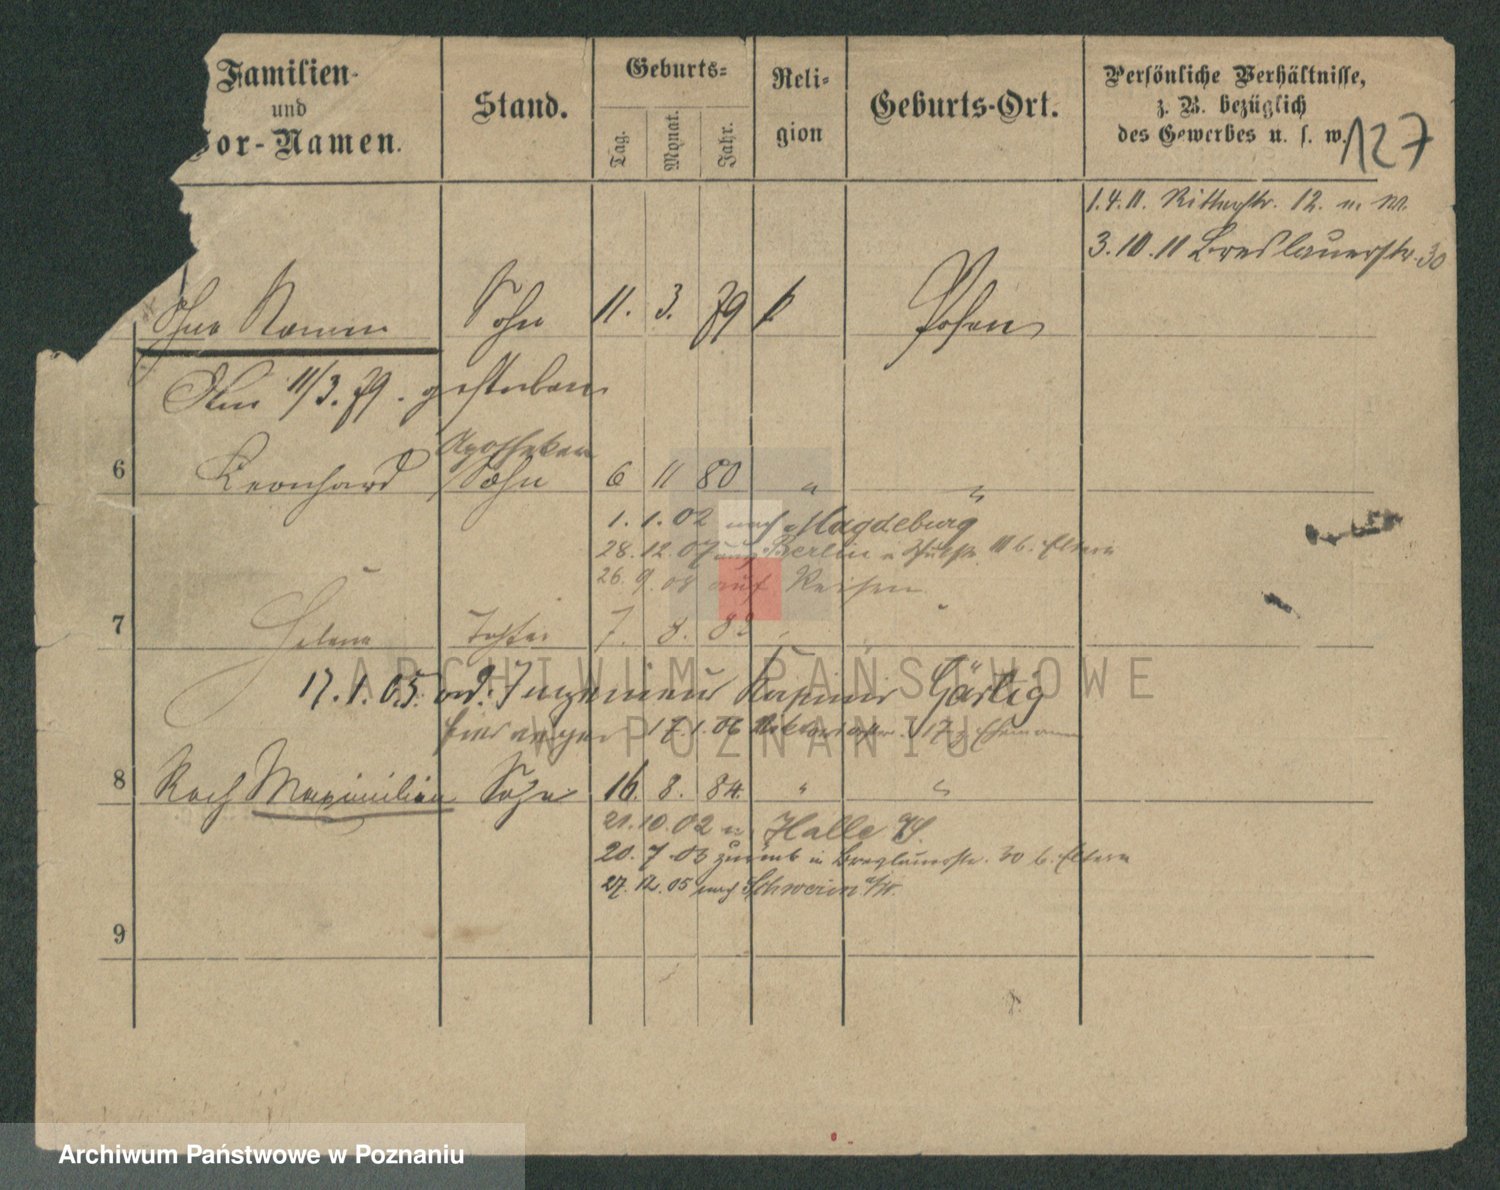 Familien-
und
Vor-Namen.
Stand.
Geburts-
Tag.
Monat.
Jahr.
Reli-
gion
Geburts-Ort.
Persönliche Verhältnisse,
z. B. bezüglich
des Gewerbes u. s. w.
127
1.4.11. Ritterstr. 12. u. M.
3.10.11 Breslauerstr. 30
Ohne Namen Sohn 11. 3. 79 k Posen
Am 11/3. 79. gestorben
Apotheker
6 Leonhard Sohn 6 11 80 " "
1. 1. 02 nach Magdeburg
28. 12. 07 aus Berlin b. Eltern
26. 9. 08 auf Reisen
7 Helene Tochter 7. 8. 82 " "
17. 1. 05. Ingenieur Kasimir Gärtig
17. 1. 06
8 Roch Maximilian Sohn 16. 8. 84. " "
21. 10. 02 n. Halle a/S.
20. 7. 03 zurück Breslauerstr. 30 b. Eltern
27. 12. 05 nach Schwerin a/W.
9
ARCHIWUM PAŃSTWOWE
W POZNANIU
Archiwum Państwowe w Poznaniu